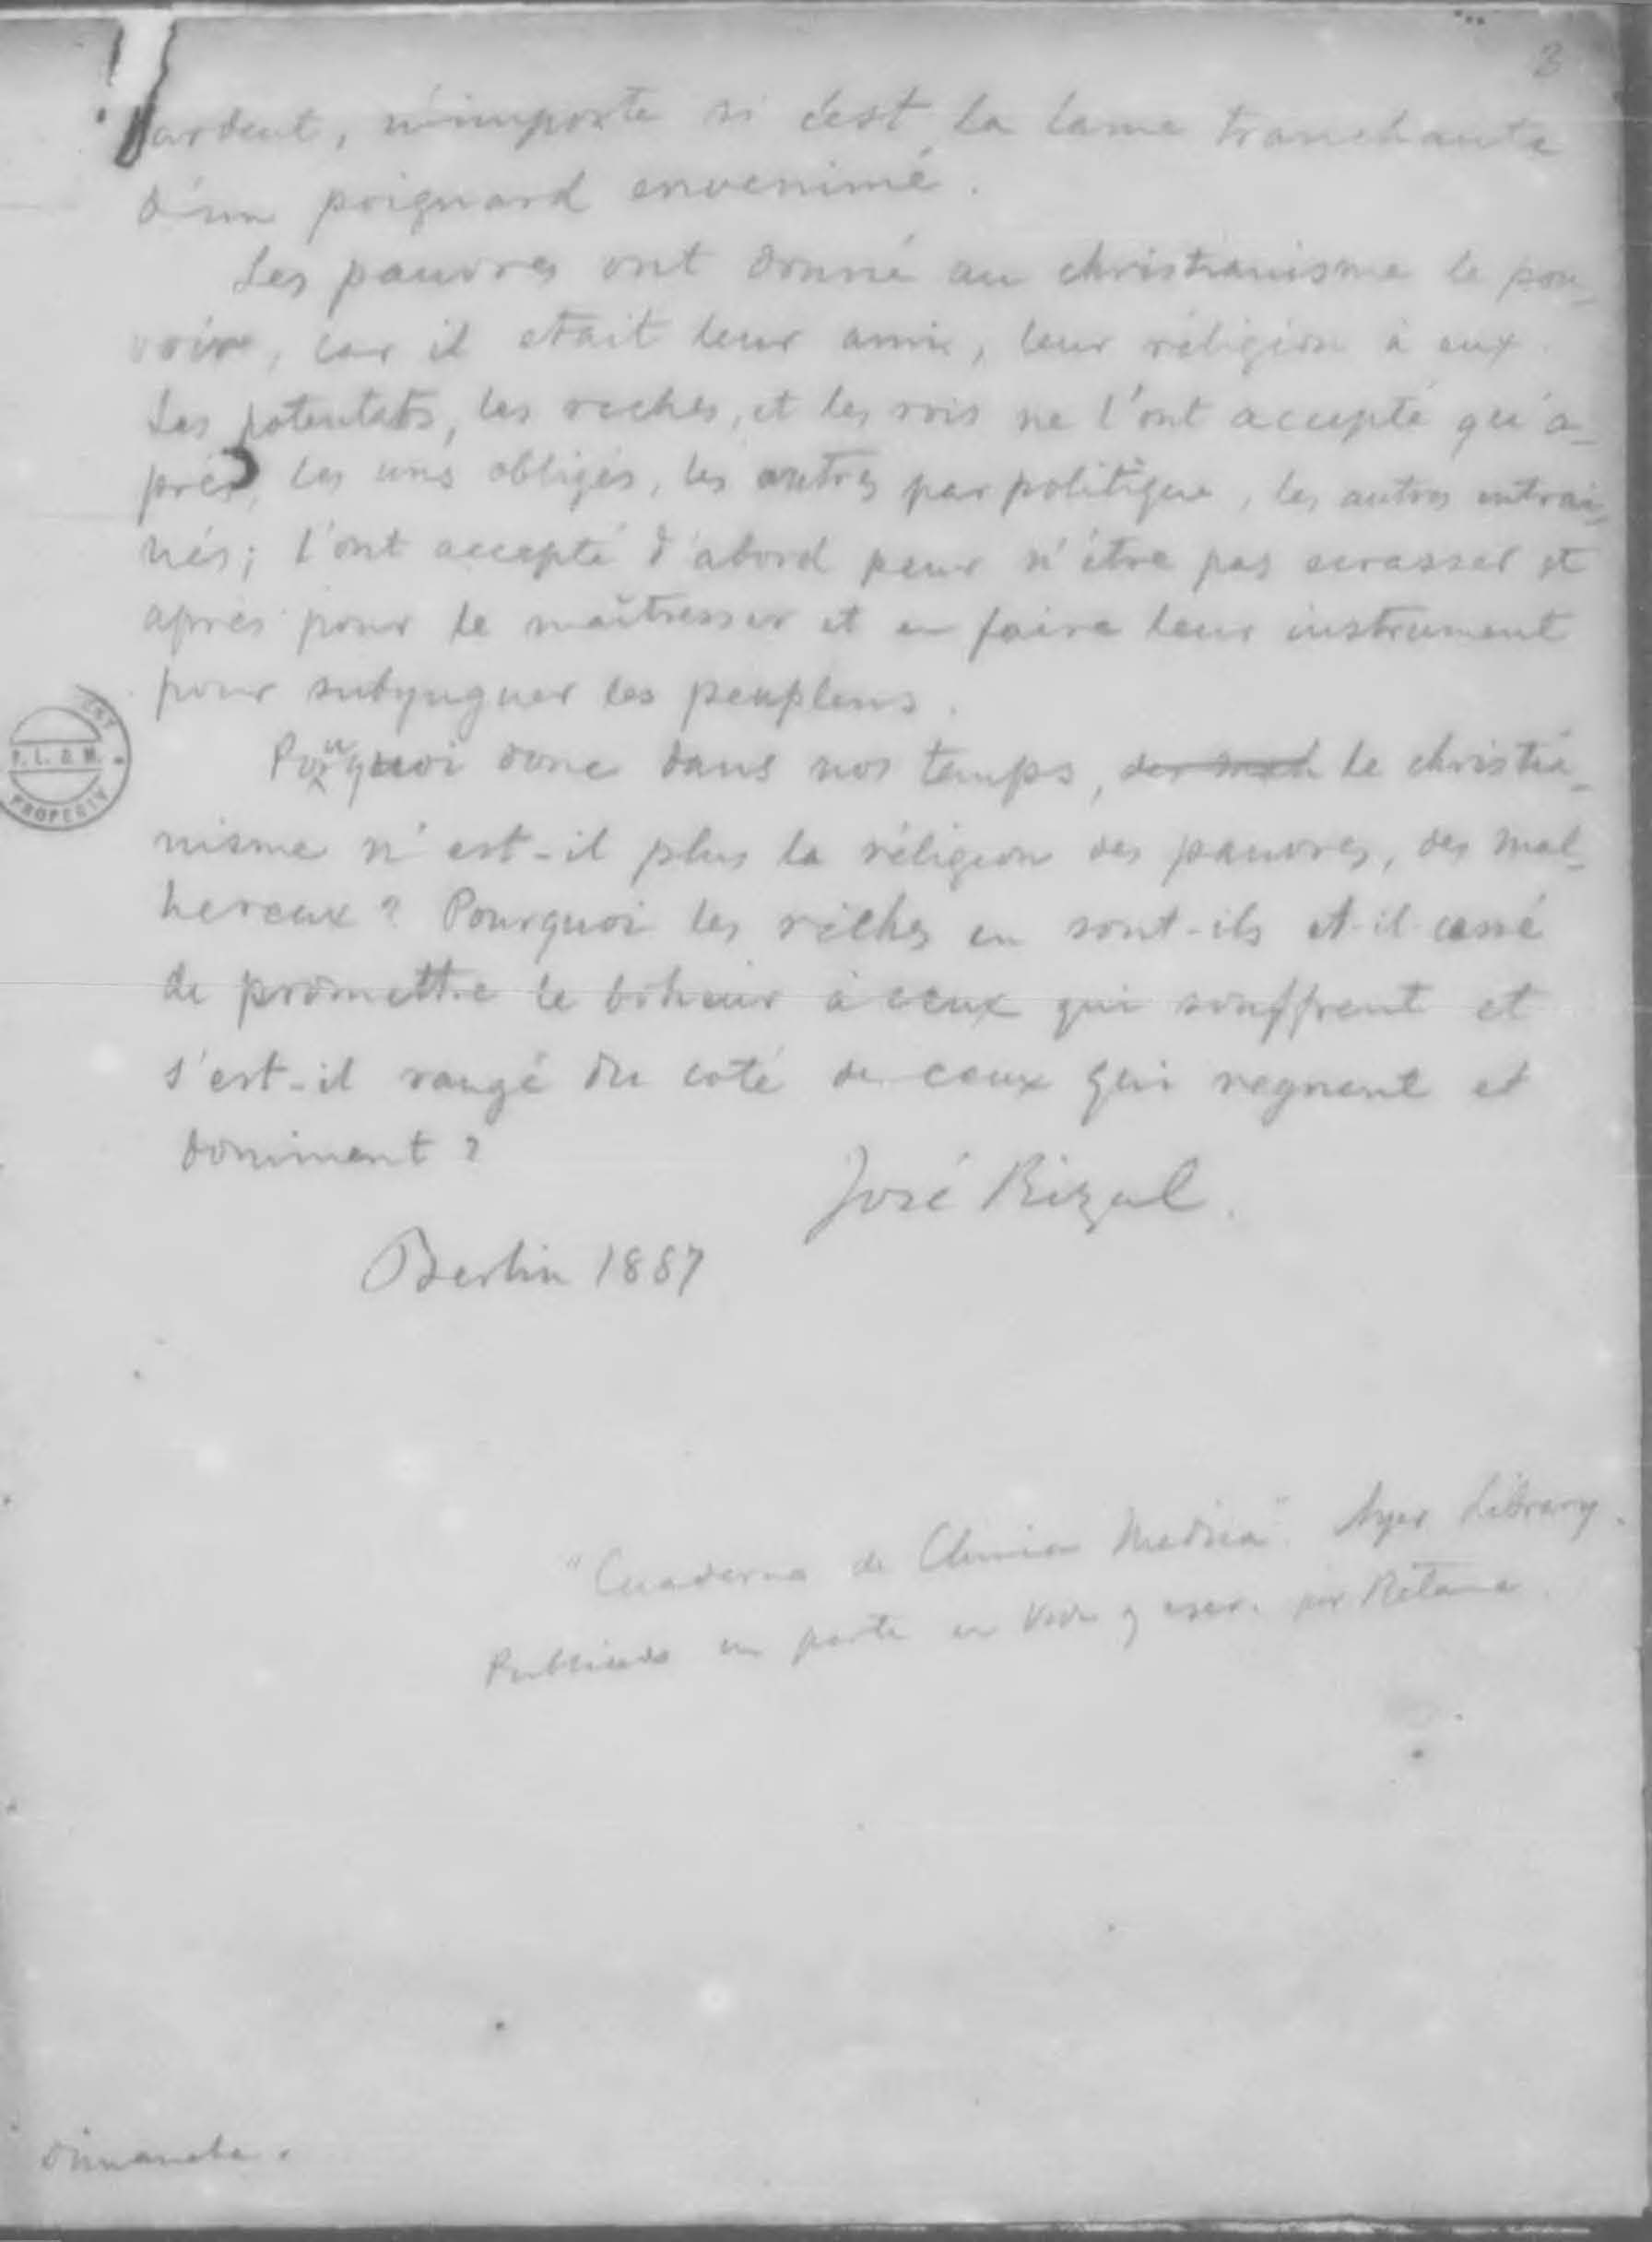 3
ardent, n'importe si c'est la lame tranchante
d'un poignard envenimé.
Les pauvres ont donné au christianisme le pou-
voir, car il etait leur ami, leur réligion à eux.
Les potentats, les riches, et les rois ne l'ont accepté qu'a-
près, les uns obligés, les autres par politique, les autres entrai-
nés; l'ont accepté d'abord pour n'être pas
après pour le maîtresser et en faire leur instrument
pour subyuguer les peuples.
Pourquoi donc dans nos temps, le christia-
nisme n'est-il plus la réligion des pauvres, des mal-
hereux? Pourquoi les riches en sont-ils et-il cessé
de promettre le boheur à ceux qui souffrent et
s'est-il rangé du coté de ceux qui regnent et
dominent?
José Rizal.
Berlin 1887
P.L. & M.
PROPERTY
"Cuaderno de Clinica Medica". Ayer Library.
Publicado en parte en Vida y escr. por Retana.
Dimanche.